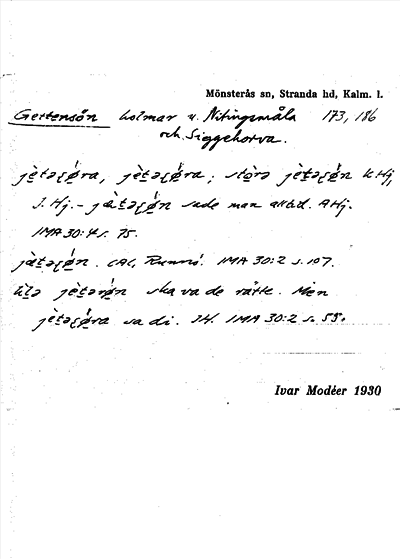 Mönsterås sn, Stranda hd, Kalm. l.
Gertensön holmar v. Nitingsmåla 173, 186
och Siggehorva.
jètəʂø̀ra, jètəʂø̀ra; störə jètəʂø̀n K Hj,
J. Hj. – jätəʂø̀n sade man alltid. AHj.
IMA 30:4 s. 75.
jätəʂø̀n. CAC, Runnö. IMA 30:2 s. 107.
jètərøn ska va de rätte. Men
jètəʂø̀ra sa di. IMA 30:2 s. 55.
Ivar Modéer 1930